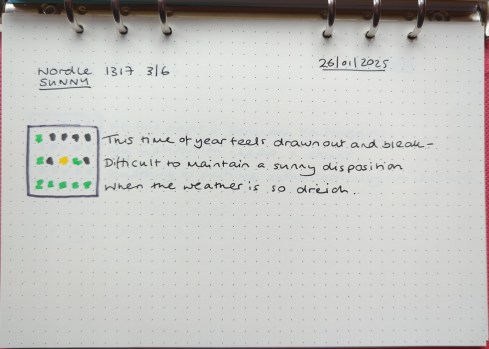 26/01/2025
Nordle 1317 3/6
SUNNY
This time of year feels drawn out and bleak -
Difficult to maintain a sunny disposition
When the weather is so dreich.